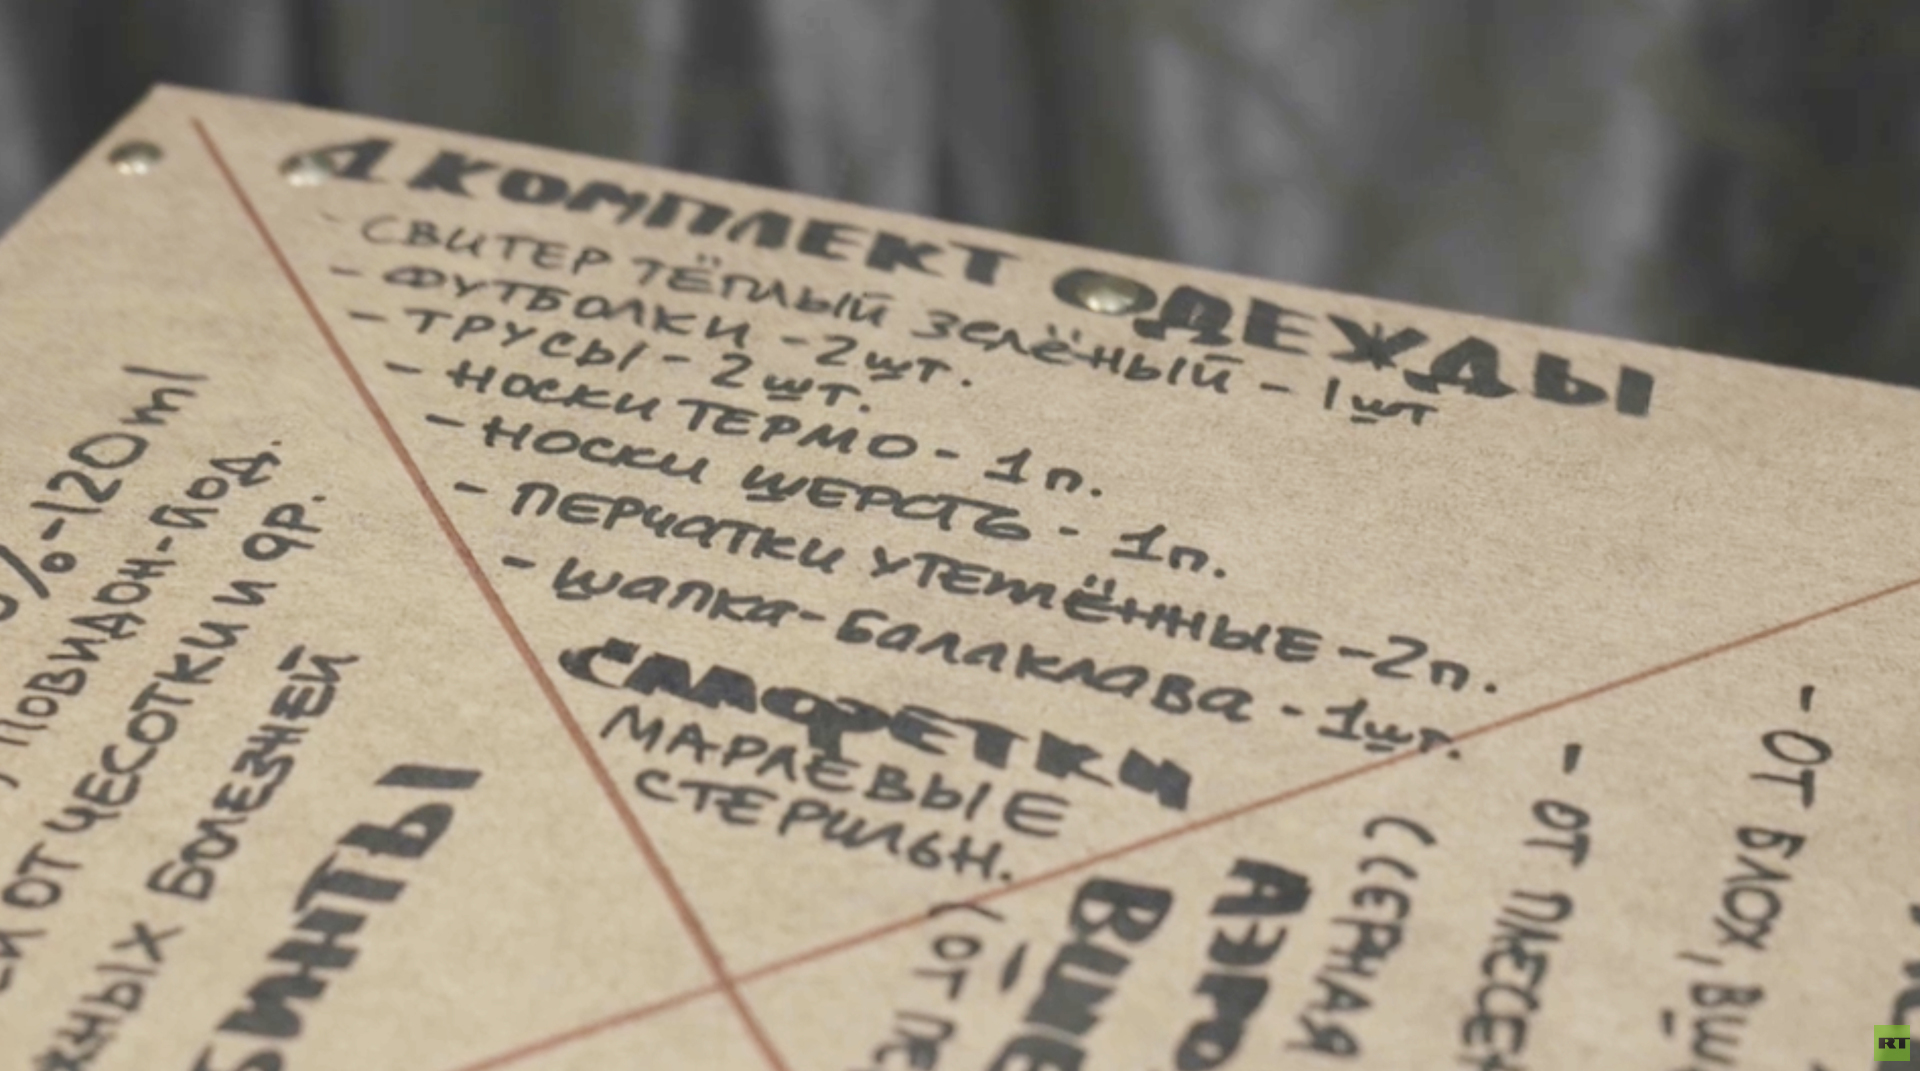 1 КОМПЛЕКТ ОДЕЖДЫ
- СВИТЕР ТЁПЛЫЙ ЗЕЛЁНЫЙ - 1 шт
- ФУТБОЛКИ - 2 шт.
- ТРУСЫ - 2 шт.
- НОСКИ ТЕРМО - 1 п.
- НОСКИ ШЕРСТЬ - 1 п.
- ПЕРЧАТКИ УТЕПЛЁННЫЕ - 2 п.
- ШАПКА-БАЛАКЛАВА - 1 шт.
САЛФЕТКИ
МАРЛЕВЫЕ
СТЕРИЛЬН.
%-120ml
ПОВИДОН-ЙОД.
ОТ ЧЕСОТКИ И ДР.
БОЛЕЗНЕЙ
БИНТЫ
(ОТ
АЭРО
(СЕРНАЯ
- ОТ
- ОТ БЛОХ,
RT